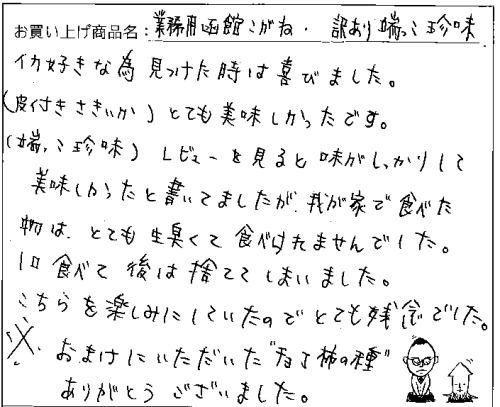 お買い上げ商品名：業務用函館こがね・訳あり端っこ珍味
イカ好きな為見つけた時は喜びました。
(皮付きさきいか)とても美味しかったです。
(端っこ珍味)レビューを見ると味がしっかりして
美味しかったと書いてましたが、我が家で食べた
物は、とても生臭くて食べられませんでした。
1口食べて後は捨ててしまいました。
こちらを楽しみにしていたのでとても残念でした。
※おまけにいただいた"チョコ柿の種"
ありがとうございました。